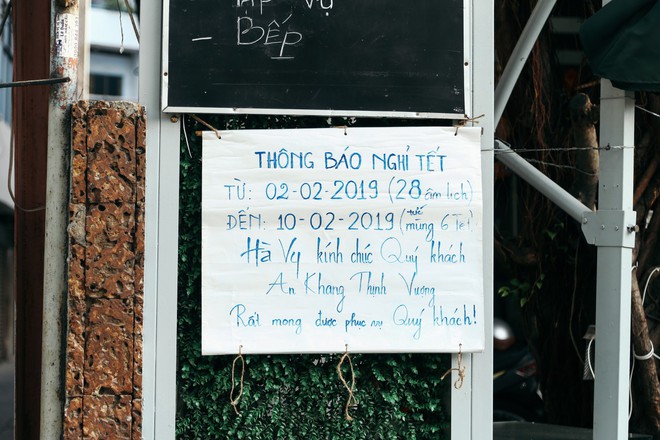 vụ
- Bếp
THÔNG BÁO NGHỈ TẾT
TỪ: 02-02-2019 (28 âm lịch)
ĐẾN: 10-02-2019 (tức mùng 6 Tết)
Hà Vy kính chúc Quý khách
An Khang Thịnh Vượng
Rất mong được phục vụ Quý khách!